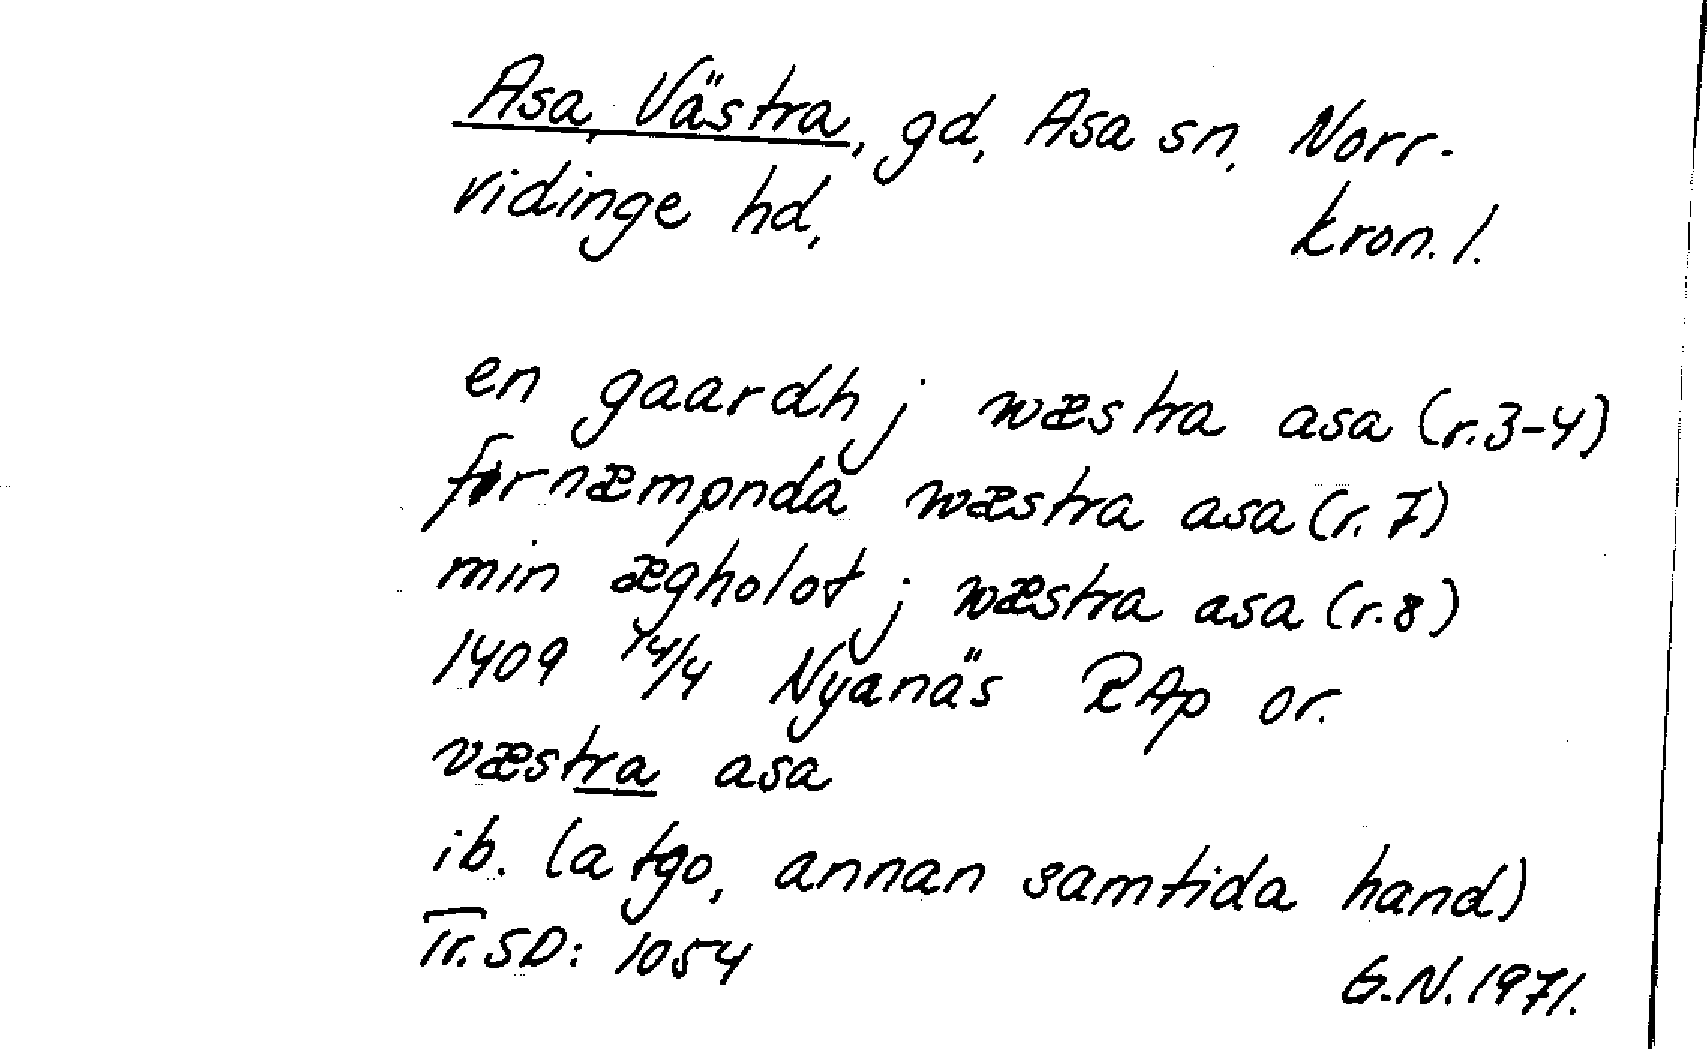 Asa, Västra, gd, Asa sn, Norr-
vidinge hd, kron. l.
en gaardh j wæstra asa (r. 3-4)
fornæmpnda wæstra asa (r. 7)
min ægholot j wæstra asa (r. 8)
1409 14/4 Nyanäs RAp or.
væstra asa
ib. (a tgo, annan samtida hand)
Tr. SD: 1054
G.N. 1971.